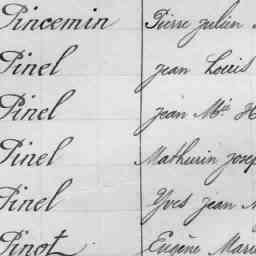 Pincemin Pierre julien
Pinel jean Louis
Pinel jean Mie
Pinel Mathurin josep
Pinel Yves jean
Pinot Eugène Marie